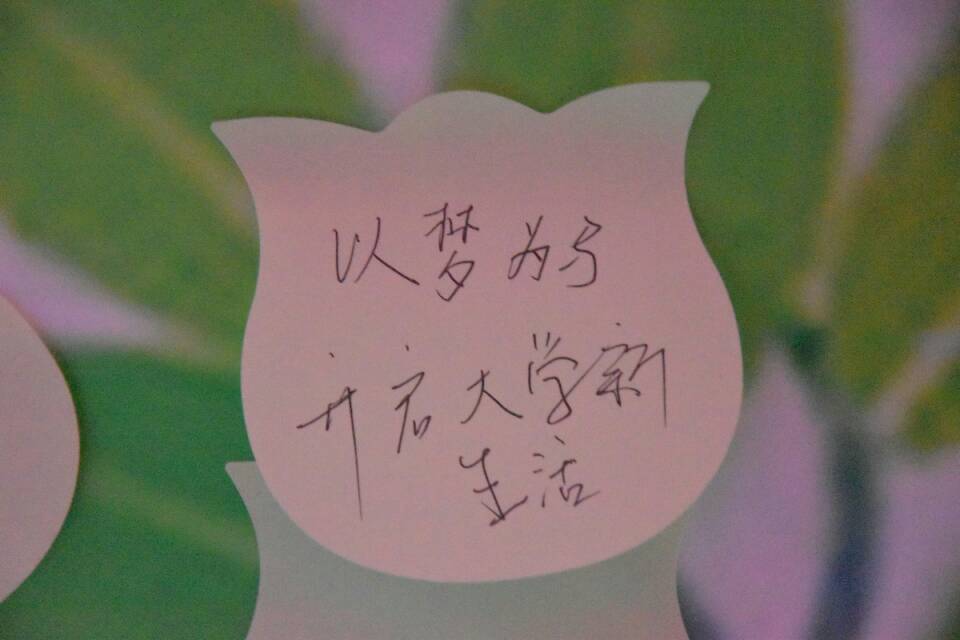 以梦为马
开启大学新
生活